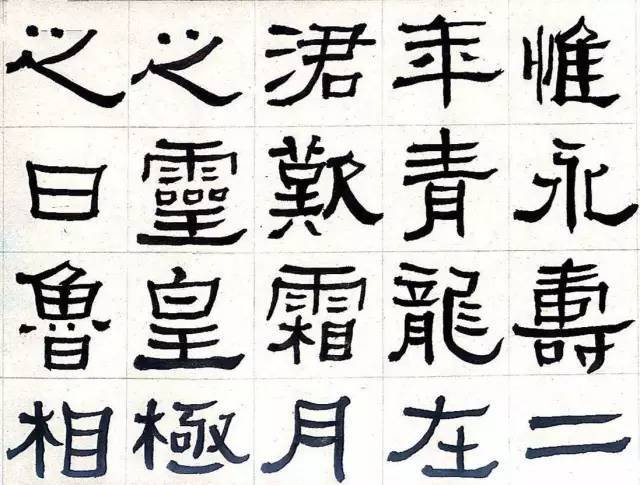 惟永壽二
年青龍在
涒歎霜月
之靈皇極
之日魯相